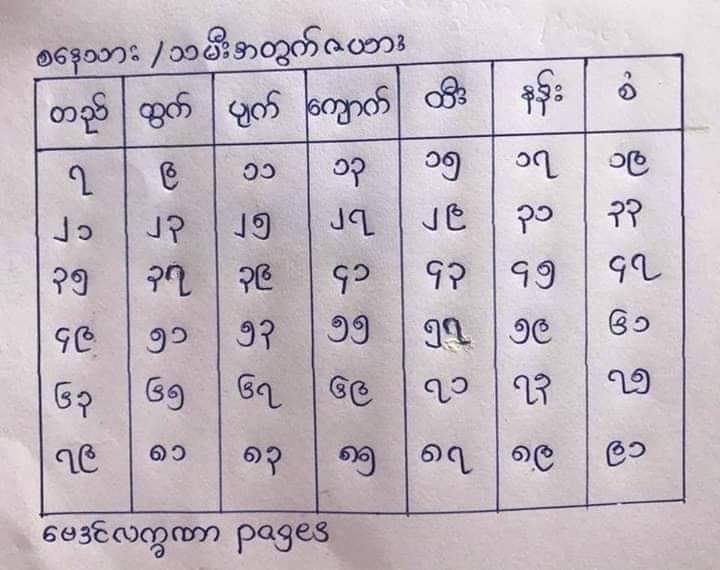 စနေသား / သမီးအတွက် ဇယား
တည် ထွက် ပျက် ကျောက် ထီး နန်း စံ
၇ ၉ ၁၁ ၁၃ ၁၅ ၁၇ ၁၉
၂၁ ၂၃ ၂၅ ၂၇ ၂၉ ၃၁ ၃၃
၃၅ ၃၇ ၃၉ ၄၁ ၄၃ ၄၅ ၄၇
၄၉ ၅၁ ၅၃ ၅၅ ၅၇ ၅၉ ၆၁
၆၃ ၆၅ ၆၇ ၆၉ ၇၁ ၇၃ ၇၅
၇၉ ၈၁ ၈၃ ၈၅ ၈၇ ၈၉ ၉၁
ဗေဒင်လက္ခဏာ pages